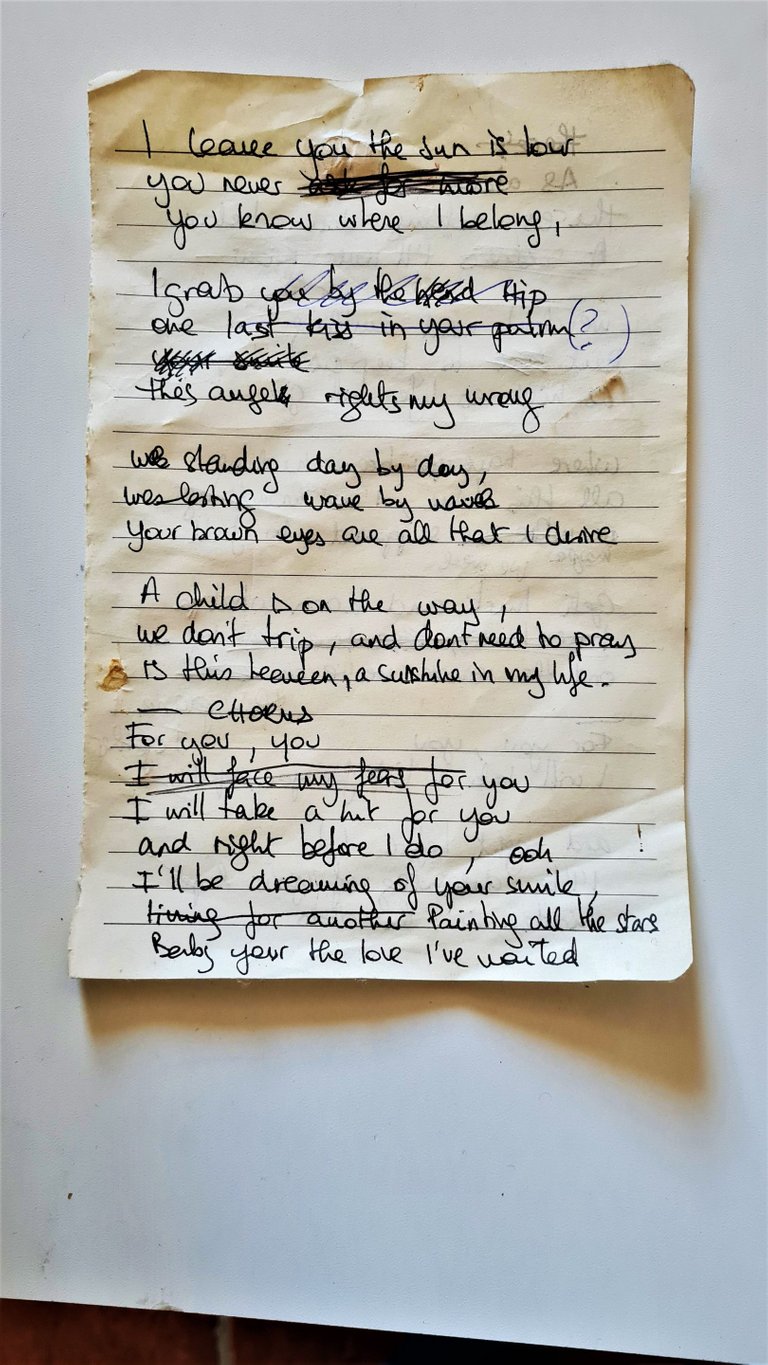 I leave you the sun is low
you never ask for more
you know where I belong,
I grab you by the hip
one last kiss in your palm (?)
this angel rights my wrong
was standing day by day,
was lasting wave by waves
your brown eyes are all that I desire
A child is on the way,
we don't trip, and dont need to pray
is this heaven, a sunshine in my life.
— CHORUS
For you, you
I will face my fears for you
I will take a hit for you
and right before I do, ooh !
I'll be dreaming of your smile,
living for another Painting all the stars
Baby your the love I've waited